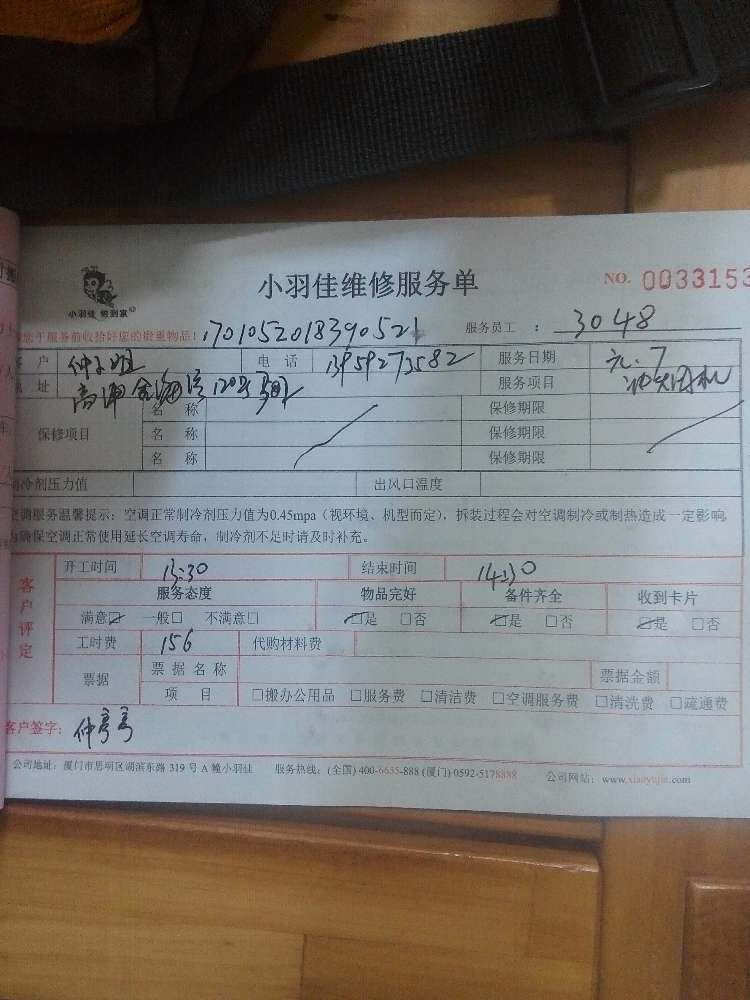 小羽佳维修服务单
NO. 0033153
小羽佳 修到家
您于服务前收拾好您的贵重物品: 1701052018390521 服务员工 : 3048
客 户 仲小姐 电 话 13959273582 服务日期 元.7
地 址 服务项目
保修项目 名 称 保修期限
名 称 保修期限
名 称 保修期限
制冷剂压力值 出风口温度
空调服务温馨提示: 空调正常制冷剂压力值为0.45mpa (视环境、机型而定), 拆装过程会对空调制冷或制热造成一定影响,
为确保空调正常使用延长空调寿命, 制冷剂不足时请及时补充。
开工时间 13:30 结束时间 14:30
客户评定
服务态度 物品完好 备件齐全 收到卡片
满意☑ 一般□ 不满意□ ☑是 □否 ☑是 □否 ☑是 □否
工时费 156 代购材料费
票据 票 据 名 称 票据金额
项 目 □搬办公用品 □服务费 □清洁费 □空调服务费 □清洗费 □疏通费
客户签字:
公司地址: 厦门市思明区湖滨东路 319 号 A 幢小羽佳 服务热线: (全国) 400-6655-888 (厦门) 0592-5178888 公司网站: www.xiaoyujia.com